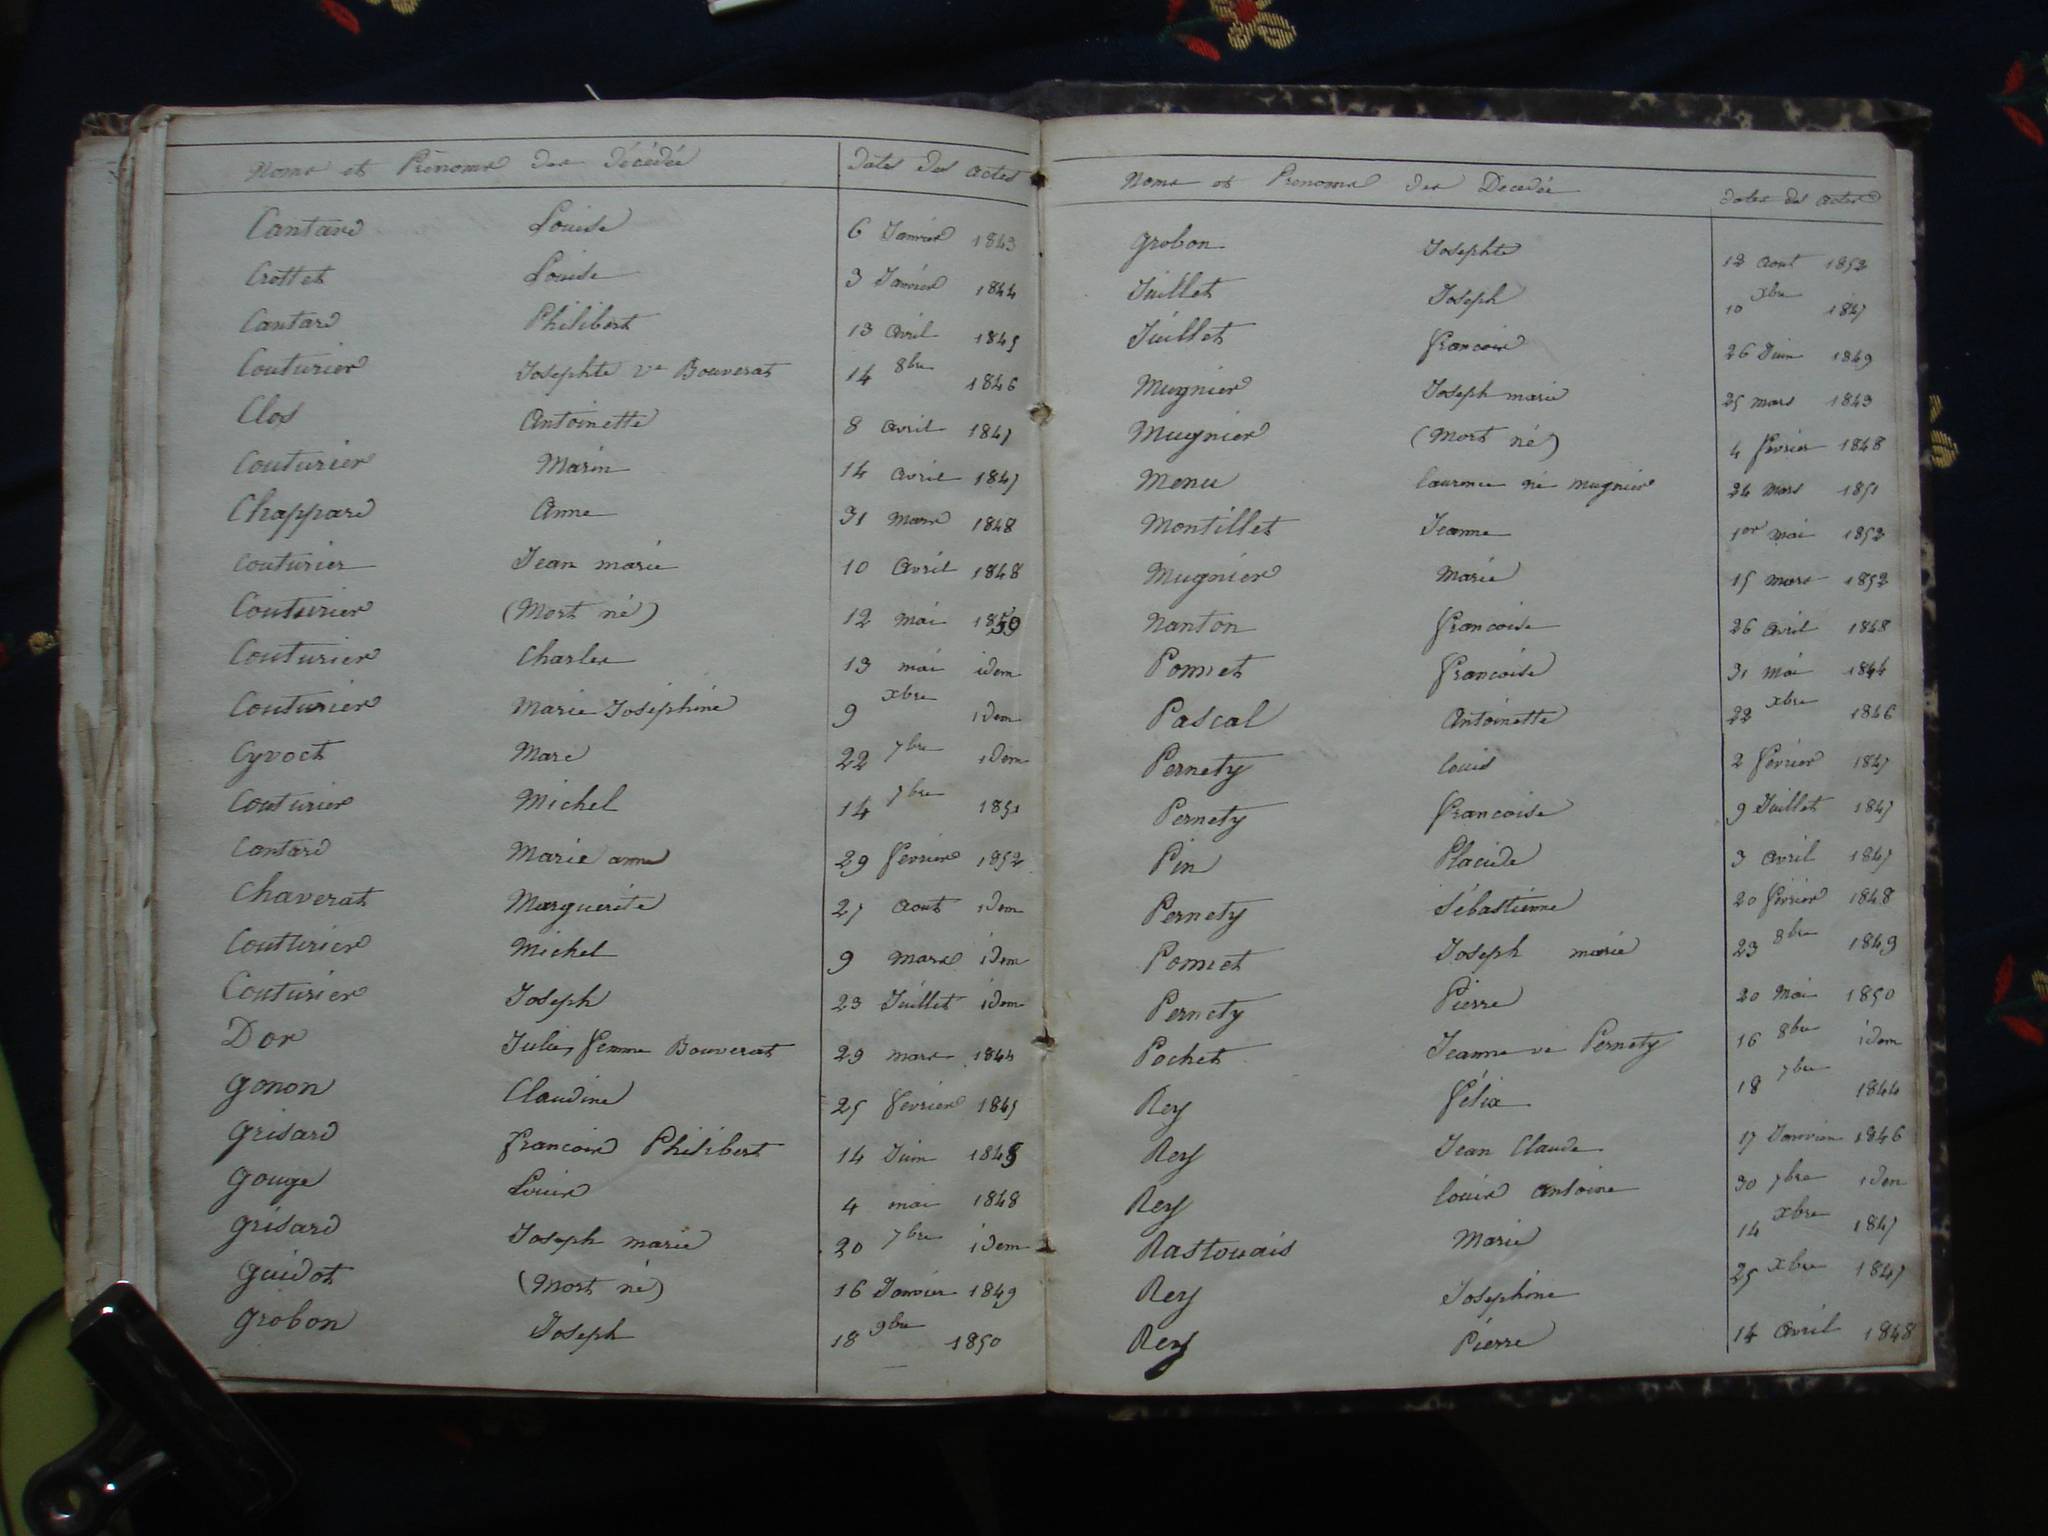 Noms et Prénoms des Décédés Dates des Actes
Cantard Louise 6 Janvier 1843
Crottet Louise 3 Janvier 1844
Cantard Philibert 13 avril 1845
Couturier Josephte Ve Bouverat 14 8bre 1846
Clos Antoinette 8 avril 1847
Couturier Marin 14 avril 1847
Chappard Anne 31 Mars 1848
Couturier Jean marie 10 Avril 1848
Couturier (Mort né) 12 Mai
Couturier Charles 13 mai idem
Couturier Marie Joséphine 9 xbre idem
Cyvoct Marc 22 7bre idem
Couturier Michel 14 7bre 1851
Cantard Marie anne 29 février 1852
Chaverat Marguerite 27 Aout idem
Couturier Michel 9 Mars idem
Couturier Joseph 23 Juillet idem
Dor Julie, femme Bouverat 29 mars 1844
Gonon Claudine 25 février 1845
Grisard francois Philibert 14 Juin
Gouge Louis 4 mai 1848
Grisard Joseph marie 20 7bre idem
Guidot (Mort né) 16 Janvier 1849
Grobon Joseph 18 9bre 1850
Noms et Prenoms des Decedés Dates des Actes
Grobon Josephte 12 Aout 1852
Juillet Joseph 10 xbre 1847
Juillet francois 26 Juin 1849
Mugnier Joseph marie 25 mars 1843
Mugnier (Mort né) 4 février 1848
Menu laurence né mugnier 24 Mars 1851
Montillet Jeanne 1er Mai 1852
Mugnier Marie 15 mars 1852
Nanton francoise 26 Avril 1848
Pomet francoise 31 Mai 1844
Pascal Antoinette 22 xbre 1846
Pernety louis 2 février 1847
Pernety francoise 9 Juillet 1847
Pin Placide 3 Avril 1847
Pernety Sébastienne 20 février 1848
Pomet Joseph marie 23 8bre 1849
Pernety Pierre 20 Mai 1850
Pochet Jeanne ve Pernety 16 8bre idem
Rey félix 18 7bre 1844
Rey Jean Claude 17 Janvier 1846
Rey louis Antoine 30 7bre idem
Rastouais Marie 14 xbre 1847
Rey Josephine 25 xbre 1847
Rey Pierre 14 Avril 1848